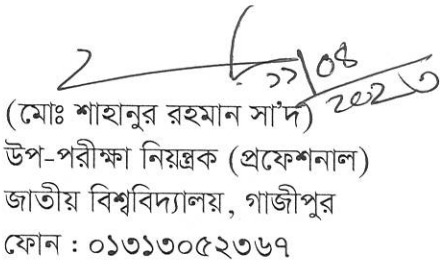 ১১/০৪
২০২৩
(মোঃ শাহানুর রহমান সা'দ)
উপ-পরীক্ষা নিয়ন্ত্রক (প্রফেশনাল)
জাতীয় বিশ্ববিদ্যালয়, গাজীপুর
ফোন : ০১৩১৩০৫২৩৬৭